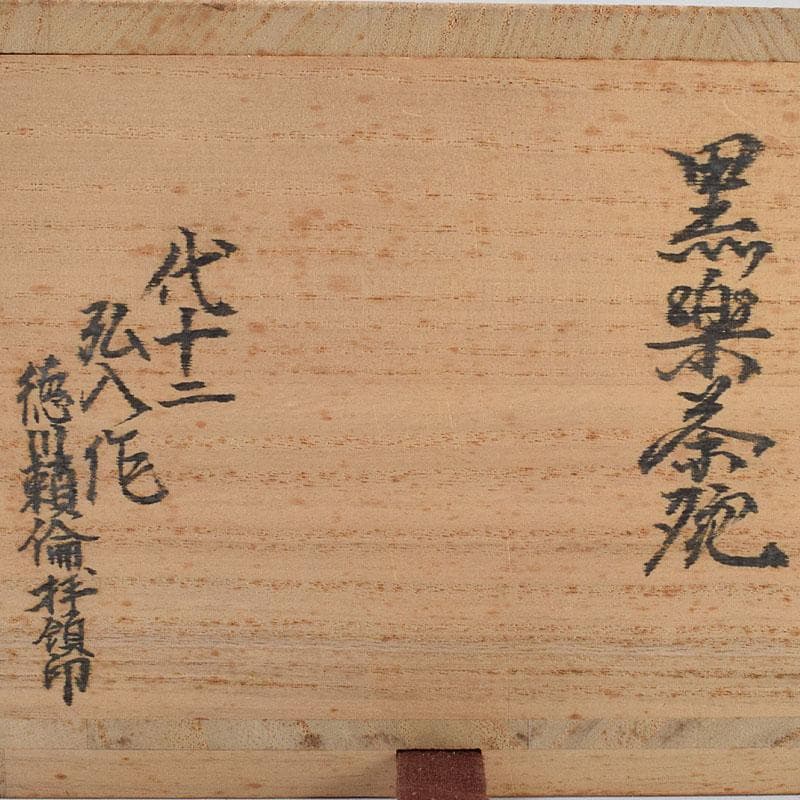 黒楽茶碗
十二代
弘入作
徳川頼倫拝領印